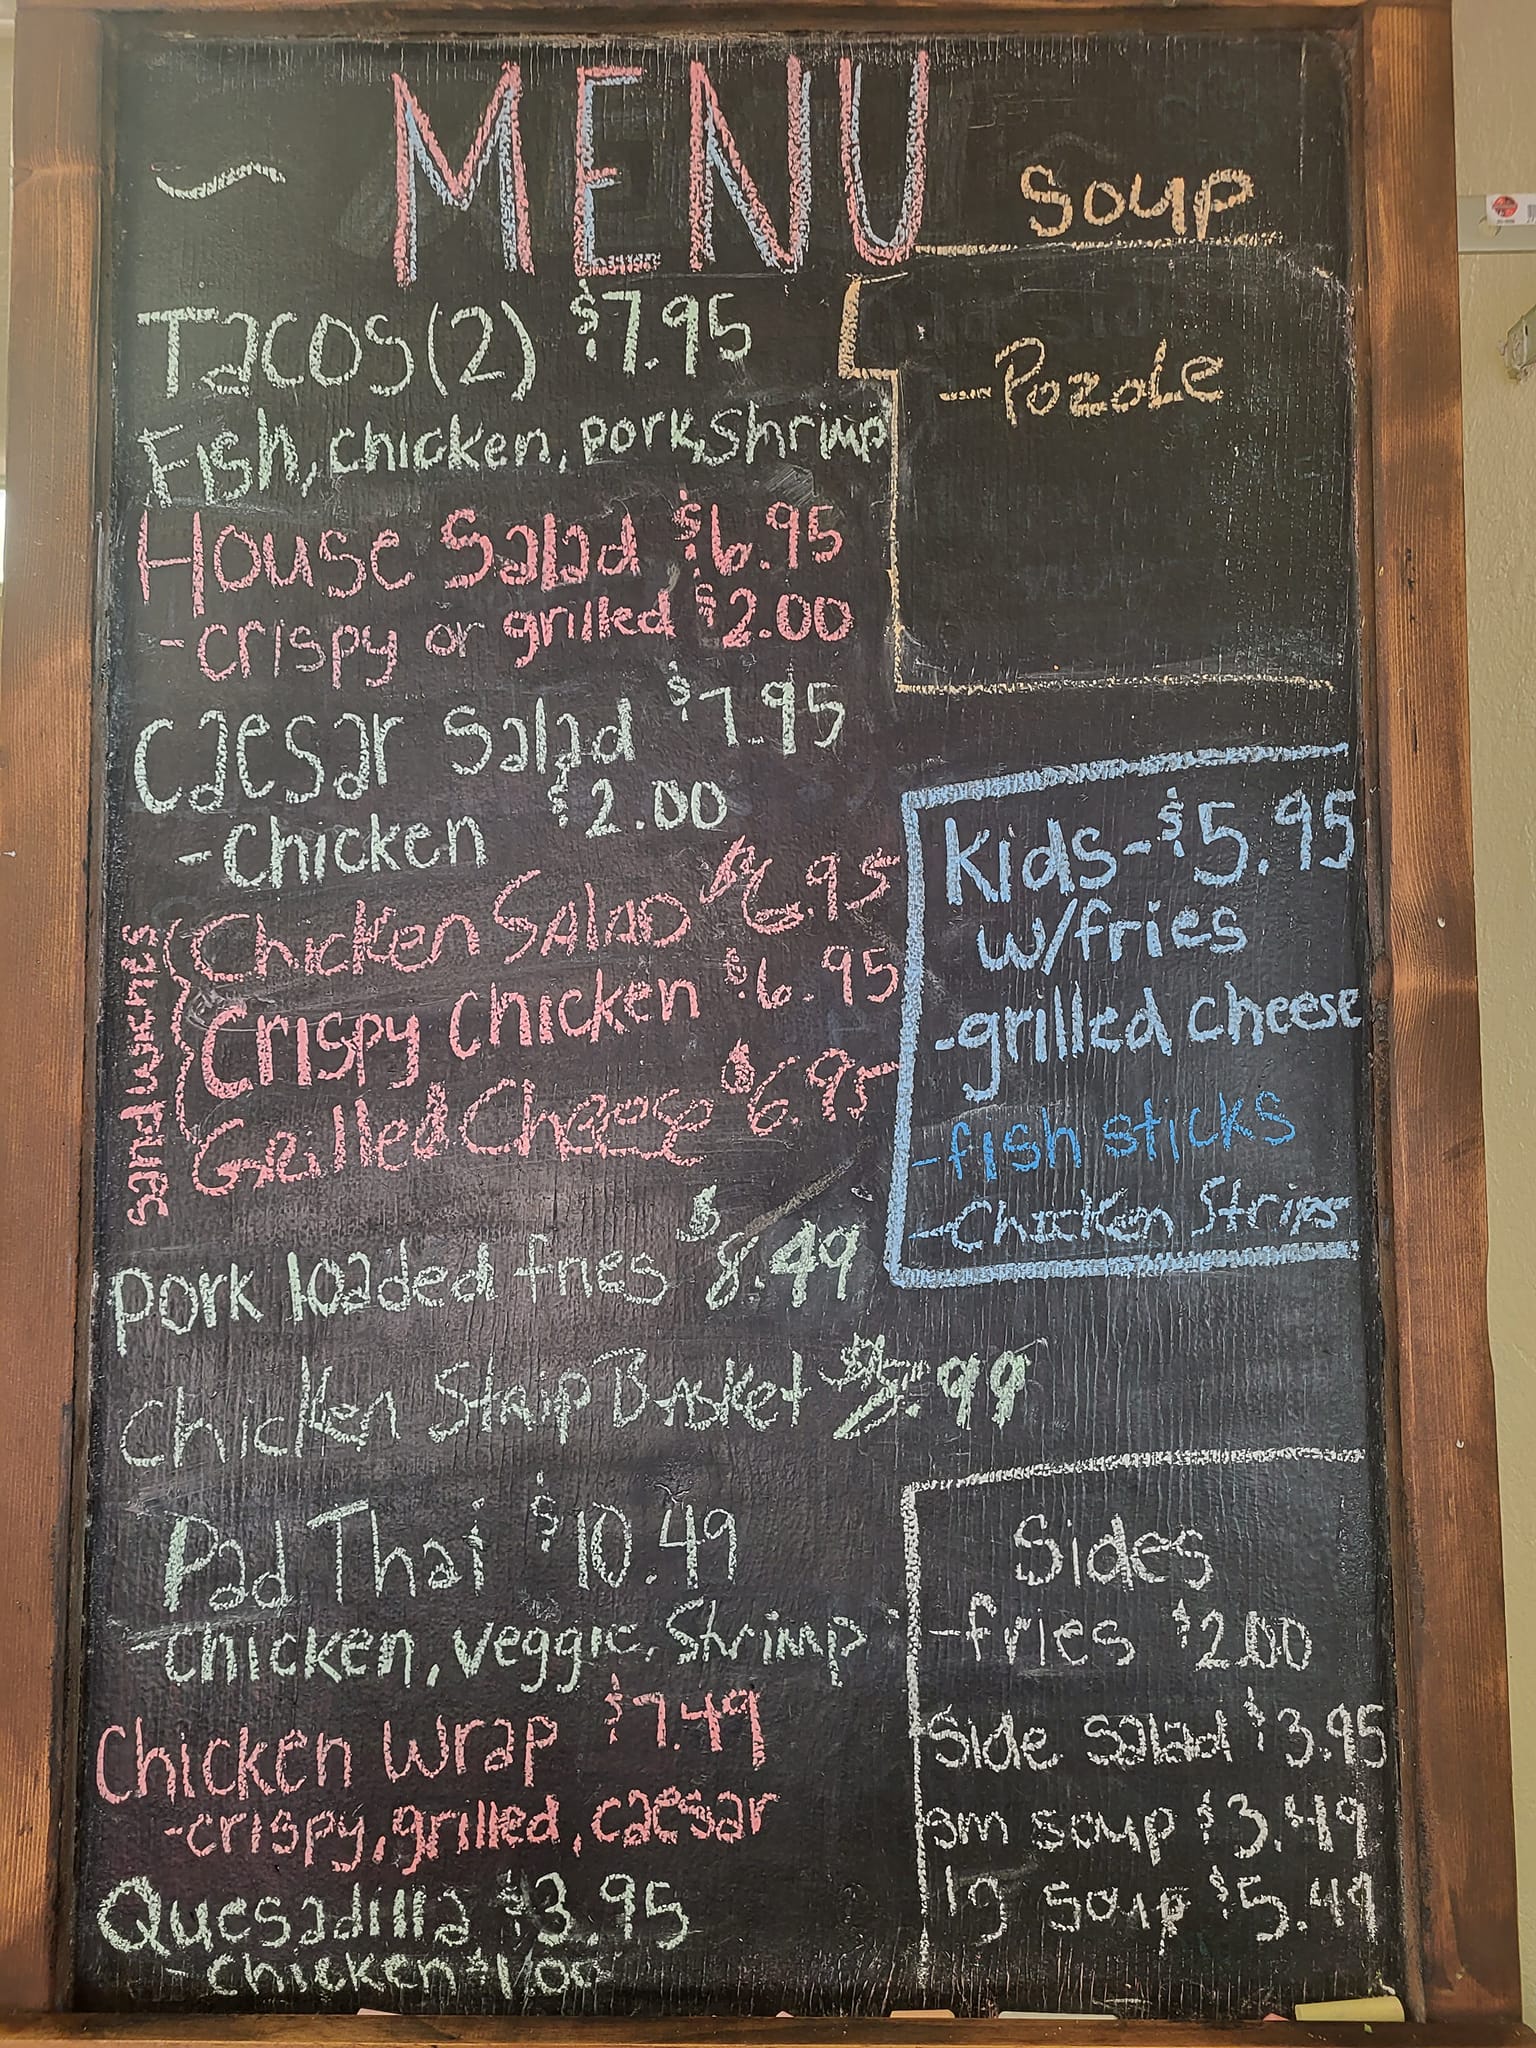 MENU
Tacos (2) $7.95
Fish, chicken, pork, shrimp
House Salad $6.95
-crispy or grilled $2.00
Caesar Salad $7.95
-Chicken $2.00
sandwiches
Chicken SALAD $6.95
Crispy chicken $6.95
Grilled Cheese $6.95
Pork loaded fries $8.49
Chicken Strip Basket
Pad Thai $10.49
-chicken, veggie, shrimp
Chicken wrap $7.49
-crispy, grilled, caesar
Quesadilla $3.95
-chicken $1.00
Soup
-Pozole
Kids-$5.95
w/fries
-grilled cheese
-fish sticks
-Chicken Strips
Sides
-fries $2.00
Side salad $3.95
sm soup $3.49
lg soup $5.49